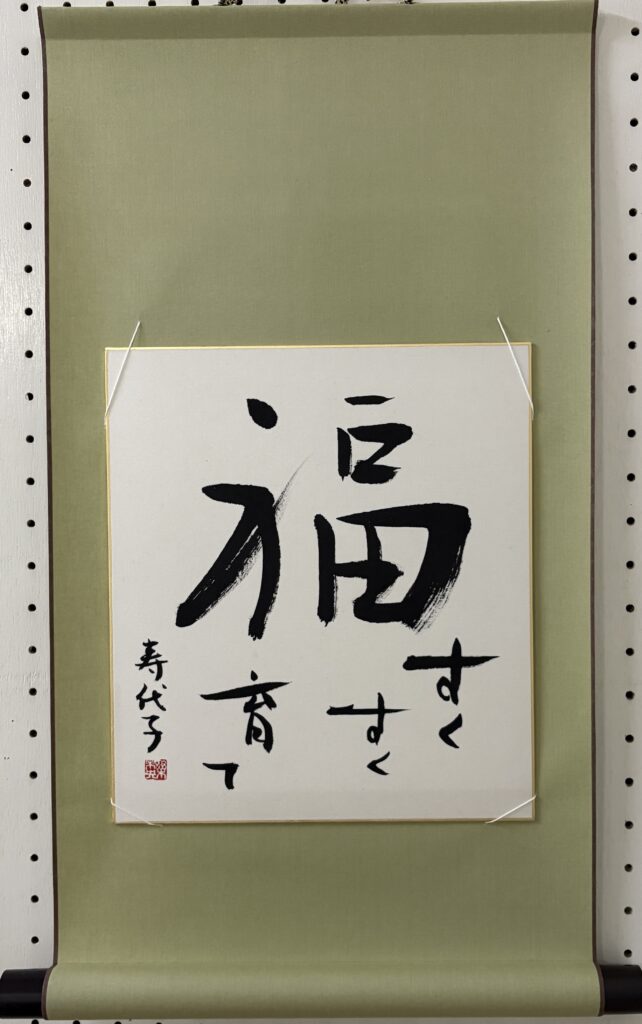 福
すく
すく
育て
寿代子